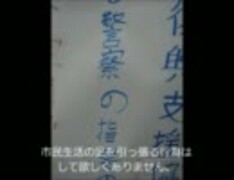 的支援
警察の指
市民生活の足を引っ張る行為は
して欲しくありません。